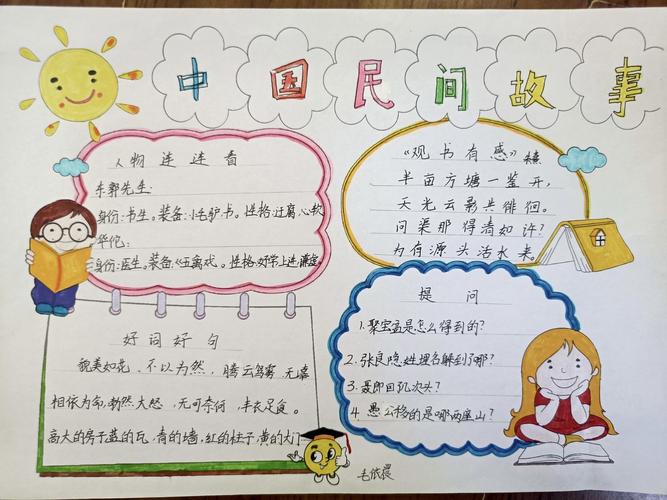 中国民间故事
人物连连看
东郭先生:
身份:书生。装备:小毛驴、书。性格:迂腐、心软
华佗:
身份:医生。装备:《五禽戏》。性格:好学上进、谦虚。
《观书有感》
半亩方塘一鉴开,
天光云影共徘徊。
问渠那得清如许?
为有源头活水来。
好词好句
貌美如花、不以为然、腾云驾雾、无靠
相依为命、勃然大怒、无可奈何、丰衣足食。
高大的房子蓝的瓦,青的墙,红的柱子,黄的大门
提问
1.聚宝盆是怎么得到的?
2.张良隐姓埋名躲到了哪?
3.聂郎回几次头?
4.愚公移的是哪两座山?